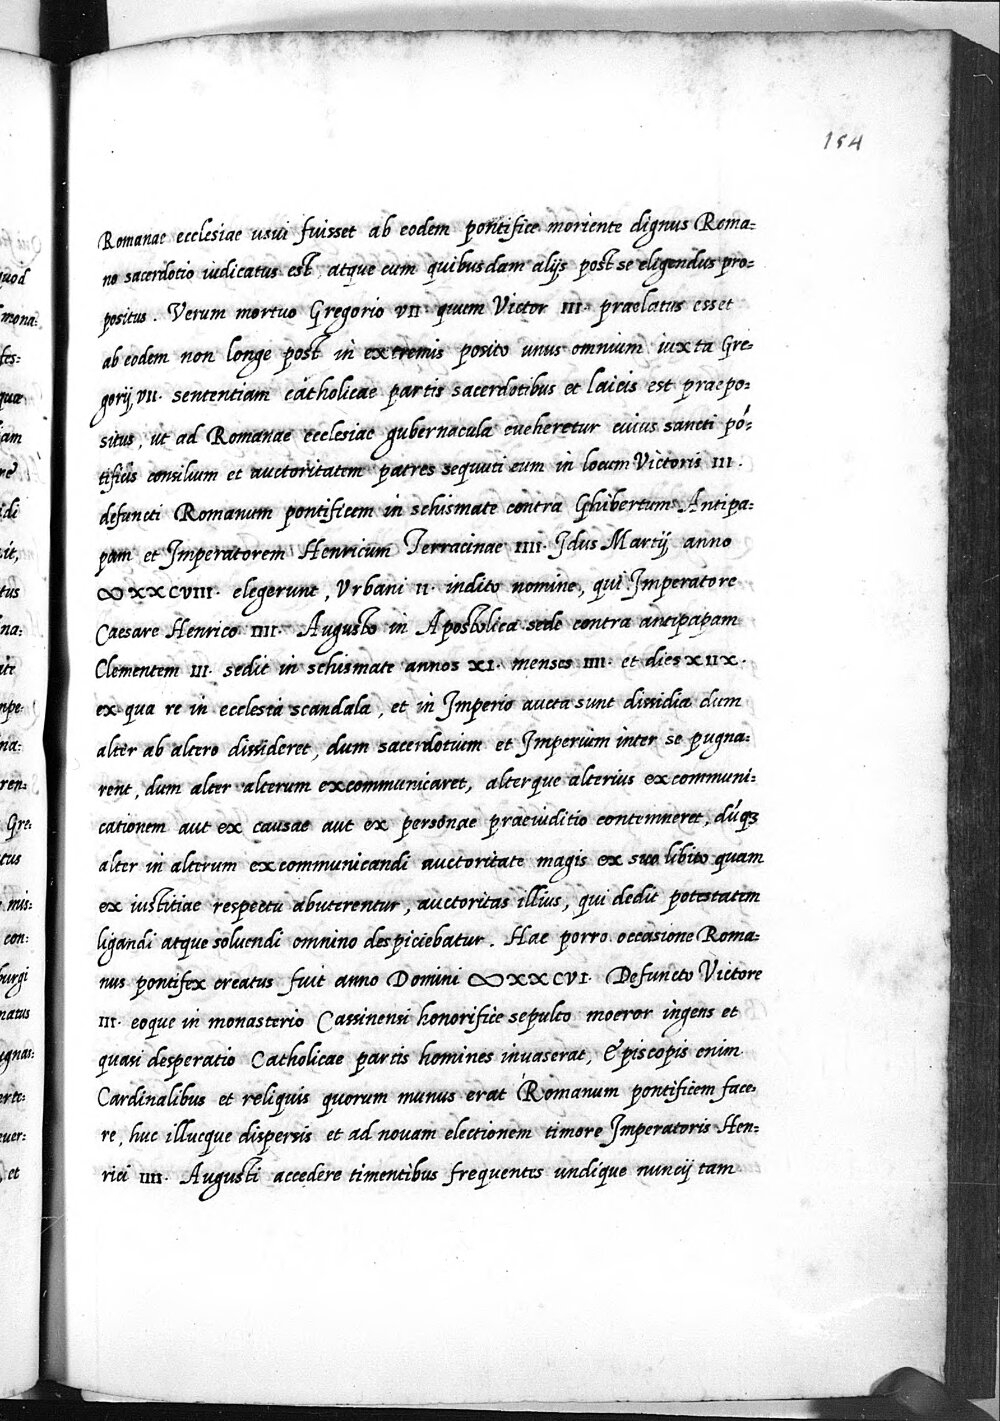 154
Romanae ecclesiae usui fuisset ab eodem pontifice moriente dignus Roma=
no sacerdotio iudicatus est, atque cum quibusdam alijs post se eligendus pro=
positus. Verum mortuo Gregorio VII. quum Victor III. praelatus esset
ab eodem non longe post in extremis posito unus omnium iuxta Gre=
gorij VII. sententiam catholicae partis sacerdotibus et laicis est praepo=
situs, ut ad Romanae ecclesiae gubernacula eueheretur cuius sancti pó=
tificis consilium et auctoritatem patres sequuti eum in locum Victoris III.
defuncti Romanum pontificem in schismate contra Ghibertum Antipa=
pam et Imperatorem Henricum Terracinae IIII. Idus Martij anno
∞XXCVIII. elegerunt, Urbani II. indito nomine, qui Imperatore
Caesare Henrico IIII. Augusto in Apostolica sede contra antipapam
Clementem III. sedit in schismate annos XI. menses IIII. et dies XIIX.
ex qua re in ecclesia scandala, et in Imperio aucta sunt dissidia dum
alter ab altero dissideret, dum sacerdotium et Imperium inter se pugna=
rent, dum alter alterum excommunicaret, alterque alterius excommuni=
cationem aut ex causae aut ex personae praeiuditio contemneret, dúq3
alter in alterum excommunicandi auctoritate magis ex suo libito quam
ex iustitiae respectu abuterentur, auctoritas illius, qui dedit potestatem
ligandi atque soluendi omnino despiciebatur. Hac porro occasione Roma=
nus pontifex creatus fuit anno Domini ∞XXCVI. Defuncto Victore
III. eoque in monasterio Cassinensi honorifice sepulto moeror ingens et
quasi desperatio Catholicae partis homines inuaserat, Episcopis enim
Cardinalibus et reliquis quorum munus erat Romanum pontificem face=
re, huc illucque dispersis et ad nouam electionem timore Imperatoris Hen=
rici IIII. Augusti accedere timentibus frequentes undique nuncij tam